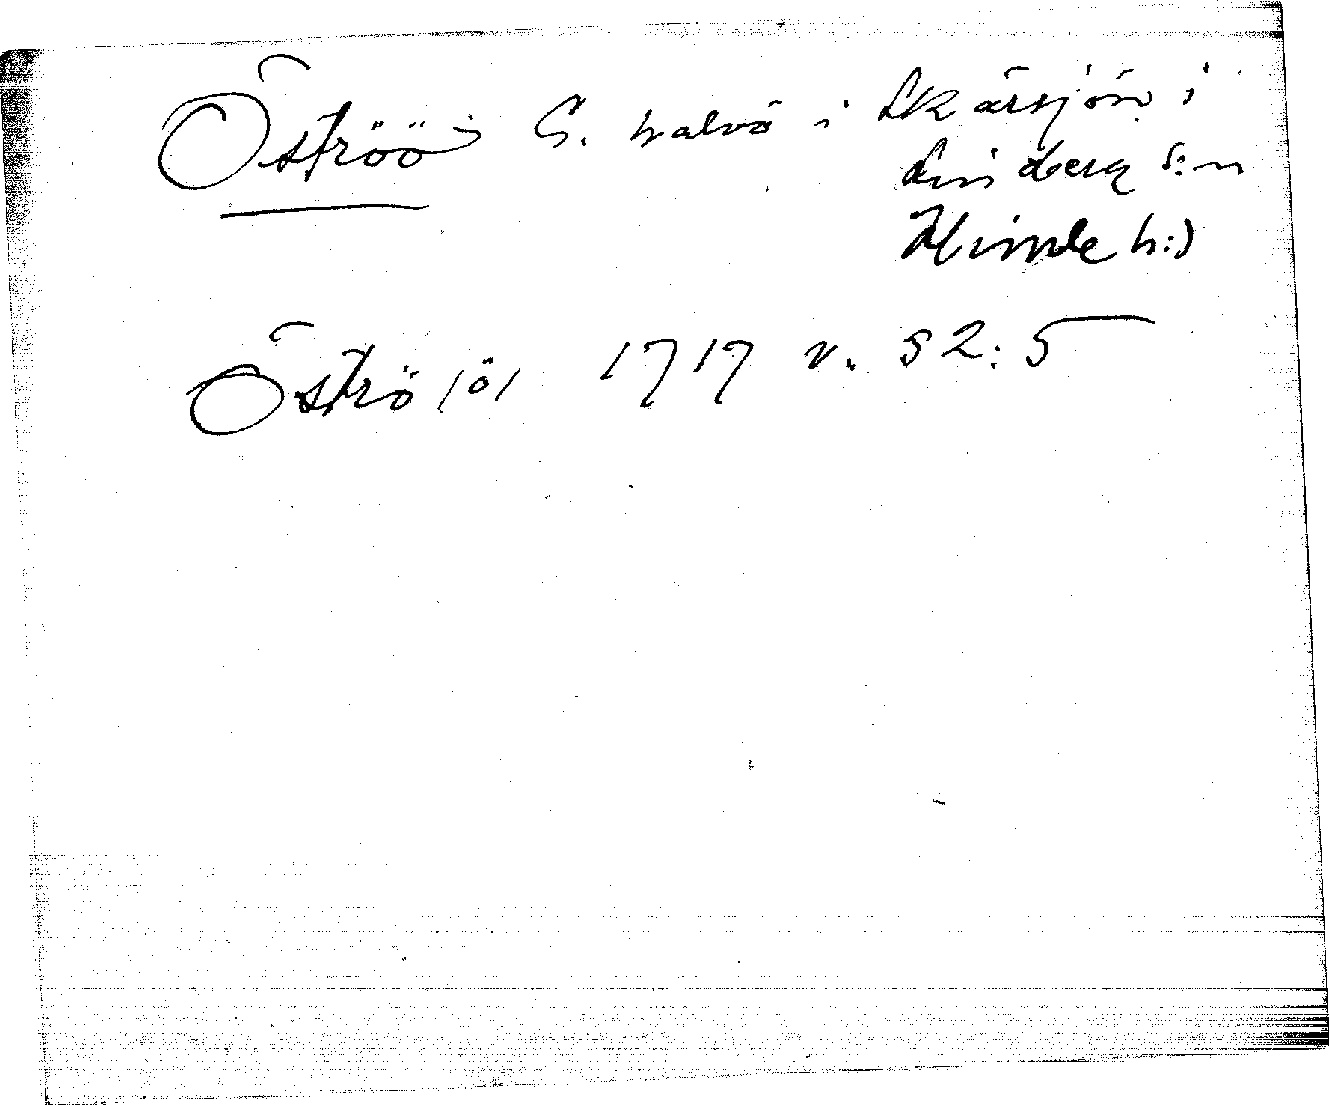 Öströö G. halvö i Skärsjön i
Lindberg s:n
Himle h:d
Öströ /ö/ 1717 v. 52:5